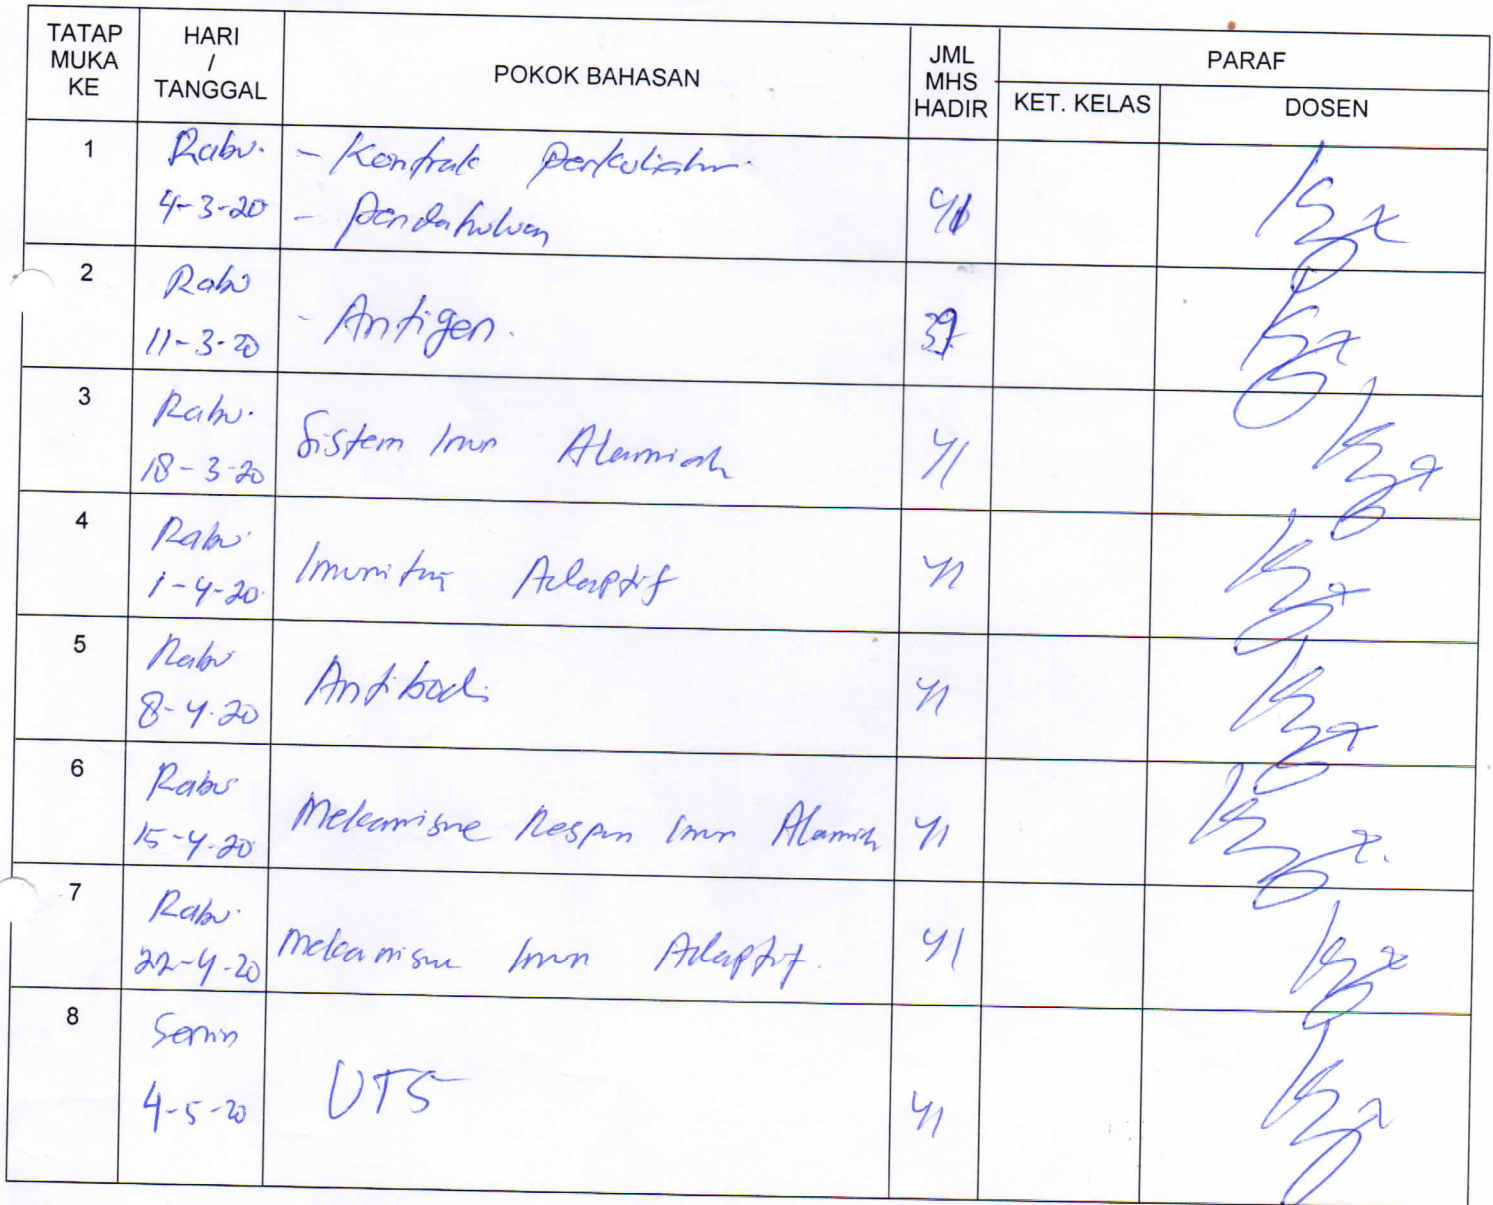 TATAP MUKA KE
HARI / TANGGAL
POKOK BAHASAN
JML MHS HADIR
PARAF
KET. KELAS
DOSEN
1
Rabu.
4-3-20
- Kontrak perkuliahan.
- pendahuluan
41
2
Rabu
11-3-20
- Antigen.
3
Rabu.
18-3-20
Sistem Imun Alamiah
41
4
Rabu
1-4-20
Imunitas Adaptif
41
5
Rabu
8-4-20
Antibodi
41
6
Rabu
15-4-20
Mekanisme Respon Imun Alamiah
41
7
Rabu.
22-4-20
Mekanisme Imun Adaptif.
41
8
Senin
4-5-20
UTS
41